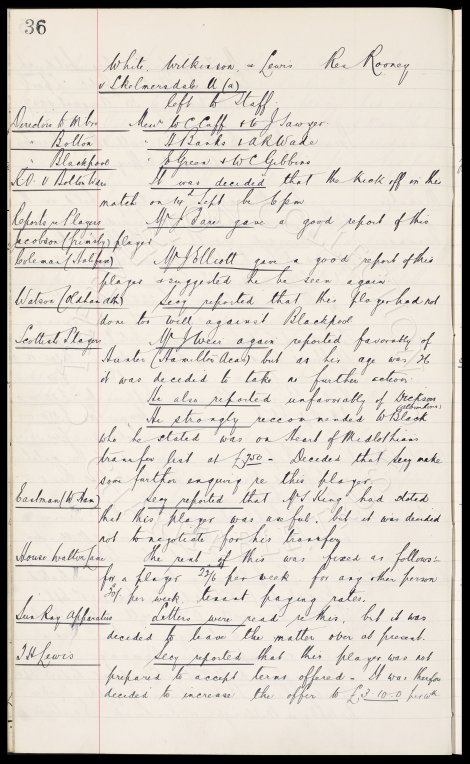 36
White, Wilkinson & Lewis Res Rooney
v Skelmersdale U (a)
left to Staff.
Directors to M Cro Messrs W C Cuff & W J Sawyer
" Bolton " H Banks & A R Wade
" Blackpool " Green & W C Gibbins
K.O. v Bolton It was decided that the kick off in this
match on Sept be 6 pm
Reports re Players Mr J Fare gave a good report of this
Jacobson (Grimsby) player
Coleman (Halifax) Mr J Ellicott gave a good report of this
player & suggested he be seen again
Watson (Oldham Ath) Secy reported that this player had not
done too well against Blackpool
Scottish Players Mr J Weir again reported favorably of
Hunter (Hamilton Acad) but as his age was 26
it was decided to take no further action.
He also reported unfavorably of Dickson
He strongly recommended W Black
who he stated was on Heart of Midlothians
transfer list at £750 - Decided that Secy make
some further enquiry re this player
Eastman (W Ham) Secy reported that Mr S King had stated
that this player was useful, but it was decided
not to negotiate for his transfer
House Walton Lane The rent of this was fixed as follows:-
for a player 22/6 per week for any other person
per week tenant paying rates.
Sun Ray Apparatus Letters were read re this, but it was
decided to leave the matter over at present.
T H Lewis Secy reported that this player was not
prepared to accept terms offered - It was therefore
decided to increase the offer to £3-10-0 per wk